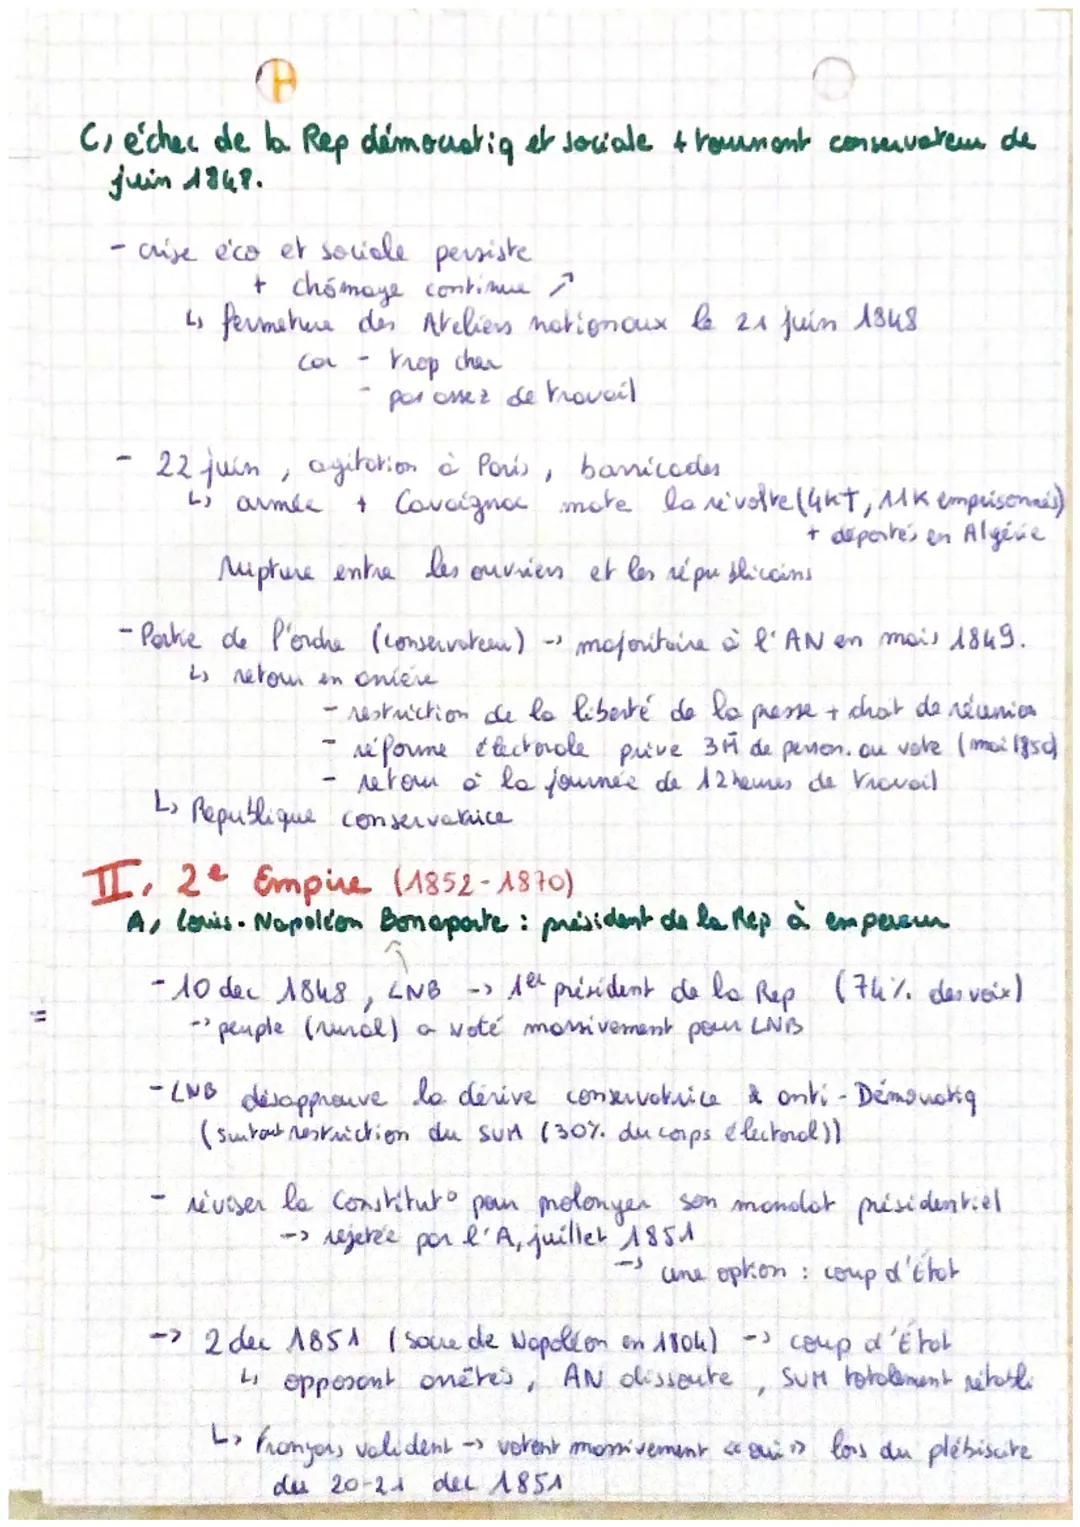 C, échec de la Rep démocratiq et sociale + tournant conservateur de
juin 1848.
- crise éco et sociale persiste
+ chômage continue ↗
↳ fermeture des Ateliers nationaux le 21 juin 1848
car - trop cher
- pas assez de travail
- 22 juin, agitation à Paris, barricades
↳ armée + Cavaignac mate la révolte (4K†, 11K emprisonnés)
+ déportés en Algérie
Rupture entre les ouvriers et les républicains
- Partie de l'ordre (conservateur) -> majoritaire à l'AN en mais 1849.
↳ retour en arrière
- restriction de la liberté de la presse + droit de réunion
- réforme électorale prive 3M de person. au vote (mai 1850)
- retour à la journée de 12 heures de travail
↳ Republique conservatrice
II, 2e Empire (1852-1870)
A, Louis-Napoléon Bonaparte : président de la Rep à empereur
- 10 dec 1848, LNB -> 1er président de la Rep (74% des voix)
-> peuple (rural) a voté massivement pour LNB
=
- LNB désapprouve la dérive conservatrice & anti-Démocratiq
(surtout restriction du SUM (30% du corps électoral))
- réviser la Constitut° pour prolonger son mandat présidentiel
-> rejetée par l'A, juillet 1851
-> une option : coup d'État
-> 2 dec 1851 (sacre de Napoléon en 1804) -> coup d'État
↳ opposant arrêtés, AN dissoute, SUM totalement rétabli
↳ Français valident -> votent massivement «oui» lors du plébiscite
du 20-21 dec 1851